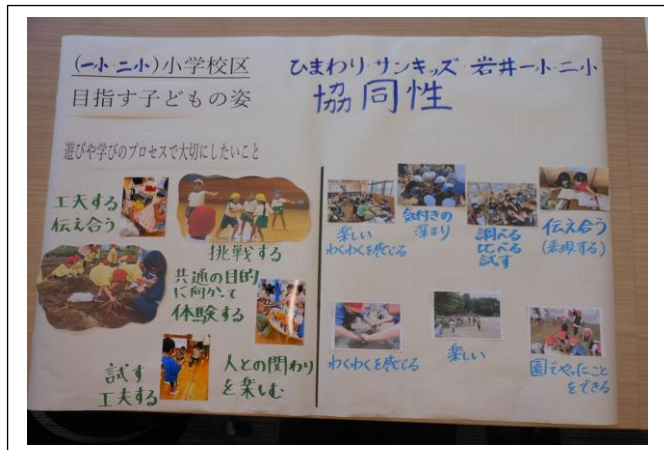 (一小・二小)小学校区
目指す子どもの姿
ひまわり・サンキッズ・岩井一小・二小
協同性
遊びや学びのプロセスで大切にしたいこと
工夫する
伝え合う
挑戦する
共通の目的
に向かって
体験する
試す
工夫する
人との関わり
を楽しむ
楽しい
わくわくを感じる
気付きの
深まり
調べる
比べる
試す
伝え合う
(表現する)
わくわくを感じる
楽しい
園でやったこと
をできる